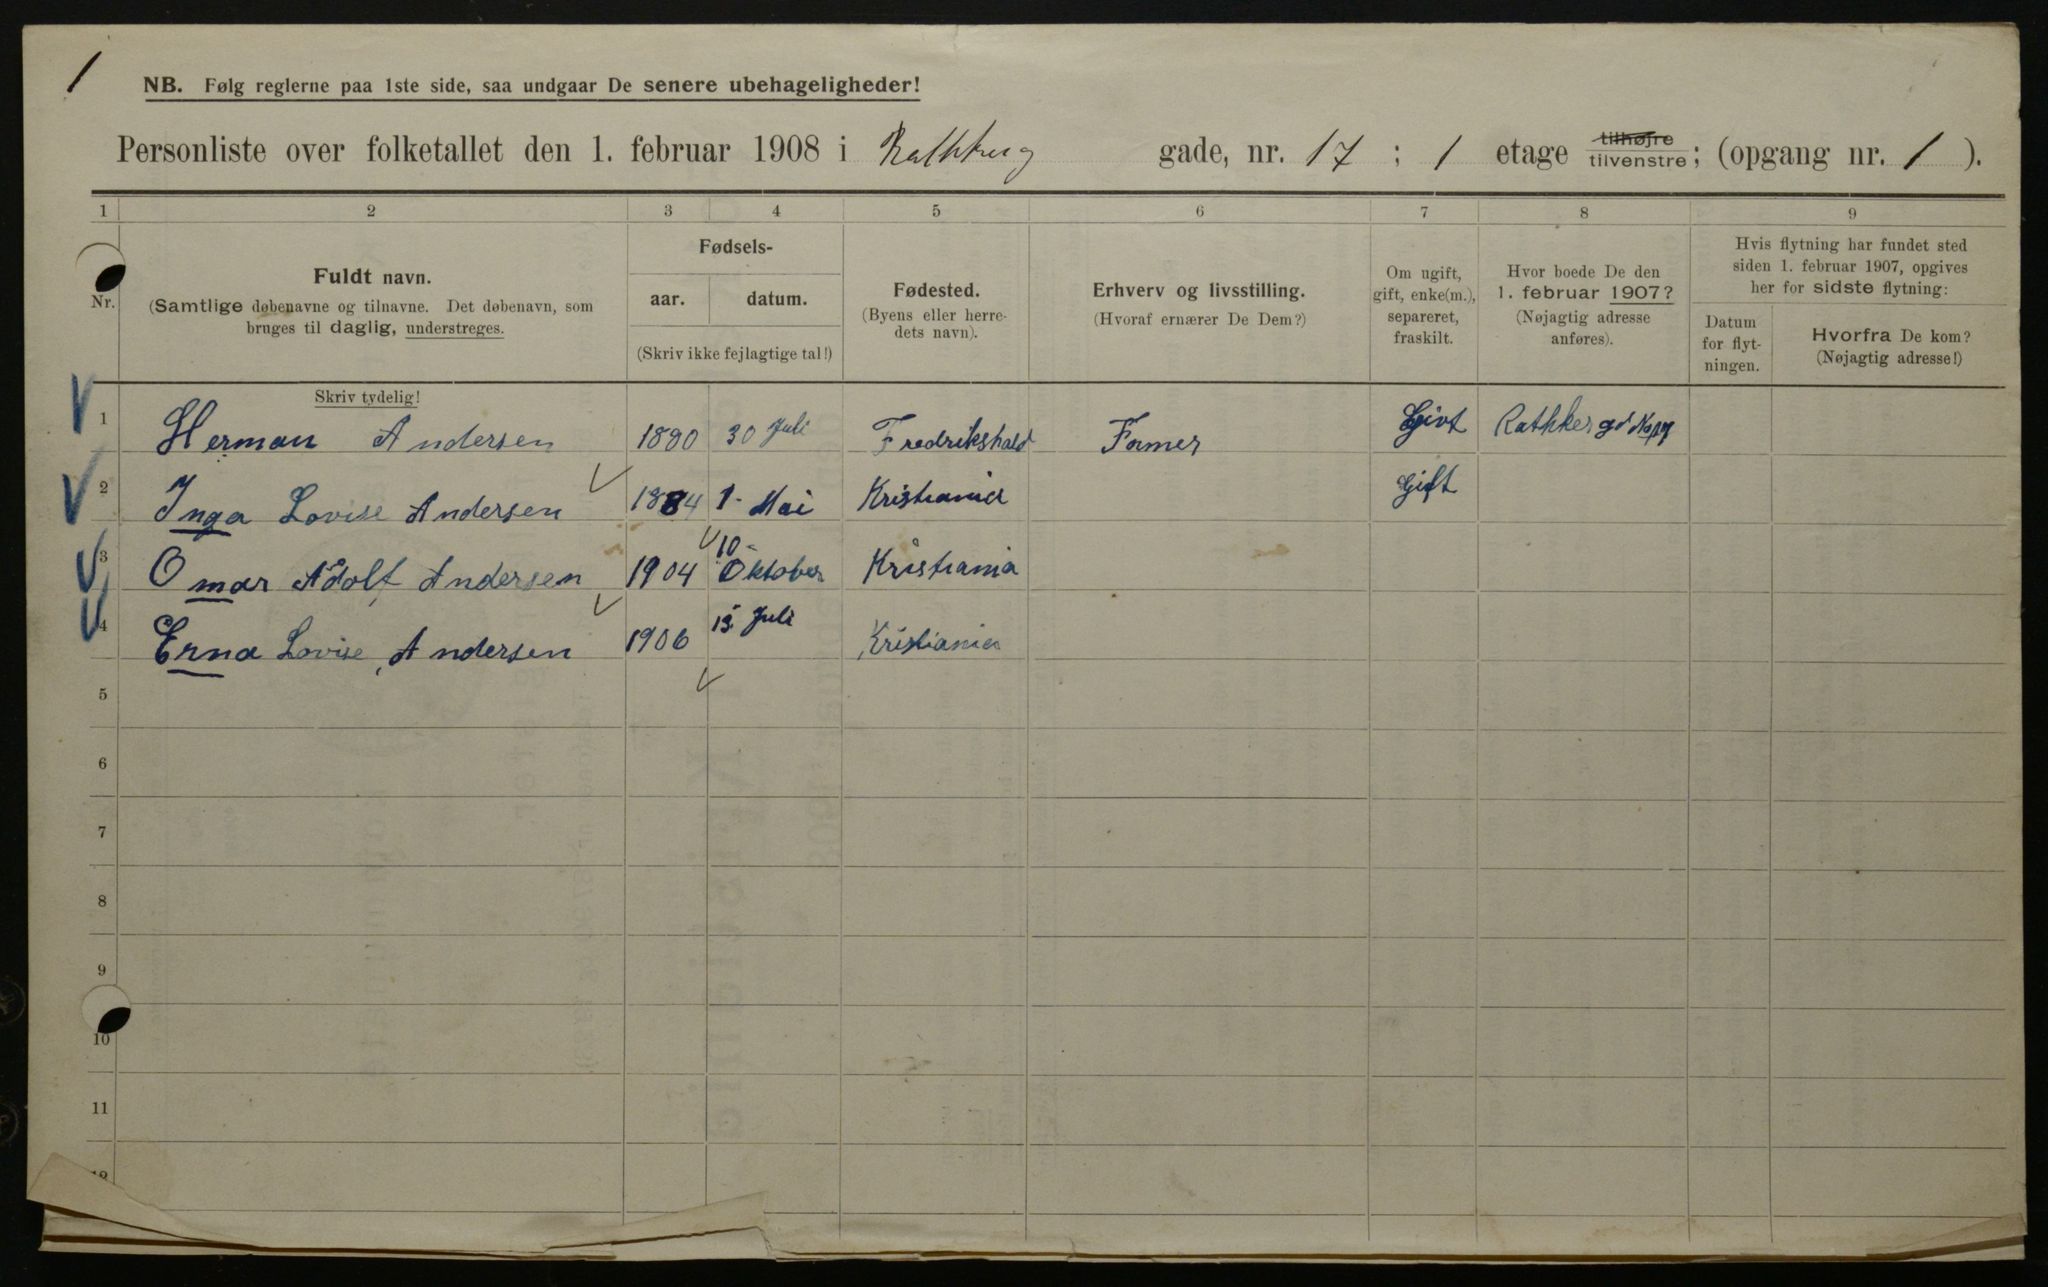 1
NB. Følg reglerne paa 1ste side, saa undgaar De senere ubehageligheder!
Personliste over folketallet den 1. februar 1908 i Rathkeg gade, nr. 17 ; 1 etage tilhøjre tilvenstre; (opgang nr. 1 ).
1 2 3 4 5 6 7 8 9
Nr.
Fuldt navn.
(Samtlige døbenavne og tilnavne. Det døbenavn, som
bruges til daglig, understreges.
Skriv tydelig!
Fødsels-
aar. datum.
(Skriv ikke fejlagtige tal!)
Fødested.
(Byens eller herre-
dets navn).
Erhverv og livsstilling.
(Hvoraf ernærer De Dem?)
Om ugift,
gift, enke(m.),
separeret,
fraskilt.
Hvor boede De den
1. februar 1907?
(Nøjagtig adresse
anføres).
Hvis flytning har fundet sted
siden 1. februar 1907, opgives
her for sidste flytning:
Datum
for flyt-
ningen.
Hvorfra De kom?
(Nøjagtig adresse!)
1 Herman Andersen 1880 30 Juli Fredrikshald Former Givt Rathkesgd
2 Inga Lovise Andersen 1884 1. Mai Kristiania Gift
3 Omar Adolf Andersen 1904 10 Oktober Kristiania
4 Erna Lovise Andersen 1906 13. Juli Kristiania
5
6
7
8
9
10
11
12